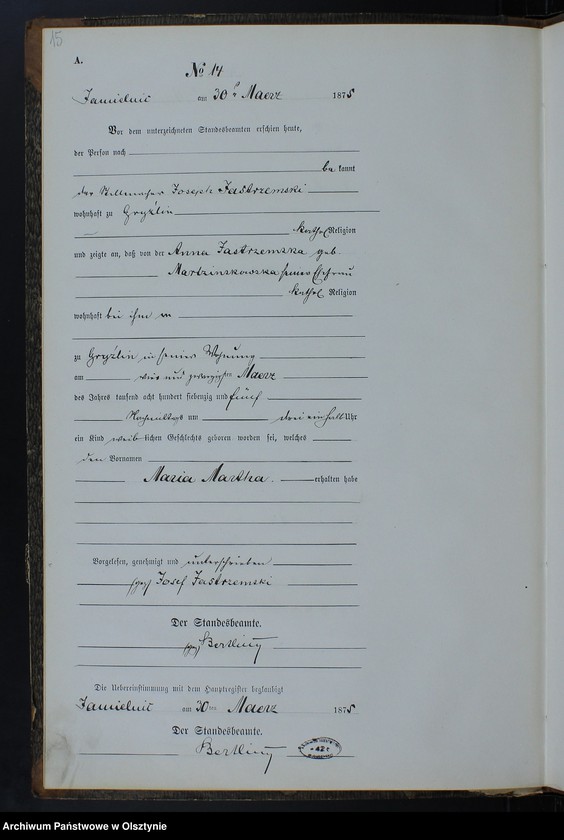 15
A.
No 14
Jamielnic am 30ten Maerz 1875
Vor dem unterzeichneten Standesbeamten erschien heute,
der Person nach
be kannt
der Stellmacher Joseph Jastrzemski
wohnhaft zu Gryźlin
kathol. Religion
und zeigte an, daß von der Anna Jastrzemska geb.
Martzinskowska seiner Ehefrau
kathol. Religion
wohnhaft bei ihm
zu Gryźlin in seiner Wohnung
am und zwanzigsten Maerz
des Jahres tausend acht hundert siebenzig und fünf
Nachmittags um drei einhalb Uhr
ein Kind weib lichen Geschlechts geboren worden sei, welches
den Vornamen
Maria Martha. erhalten habe
Vorgelesen, genehmigt und unterschrieben
(gez) Josef Jastrzemski
Der Standesbeamte.
(gez) Bertling
Die Uebereinstimmung mit dem Hauptregister beglaubigt
Jamielnic am 30ten Maerz 1875
Der Standesbeamte.
Bertling
Archiwum Państwowe w Olsztynie